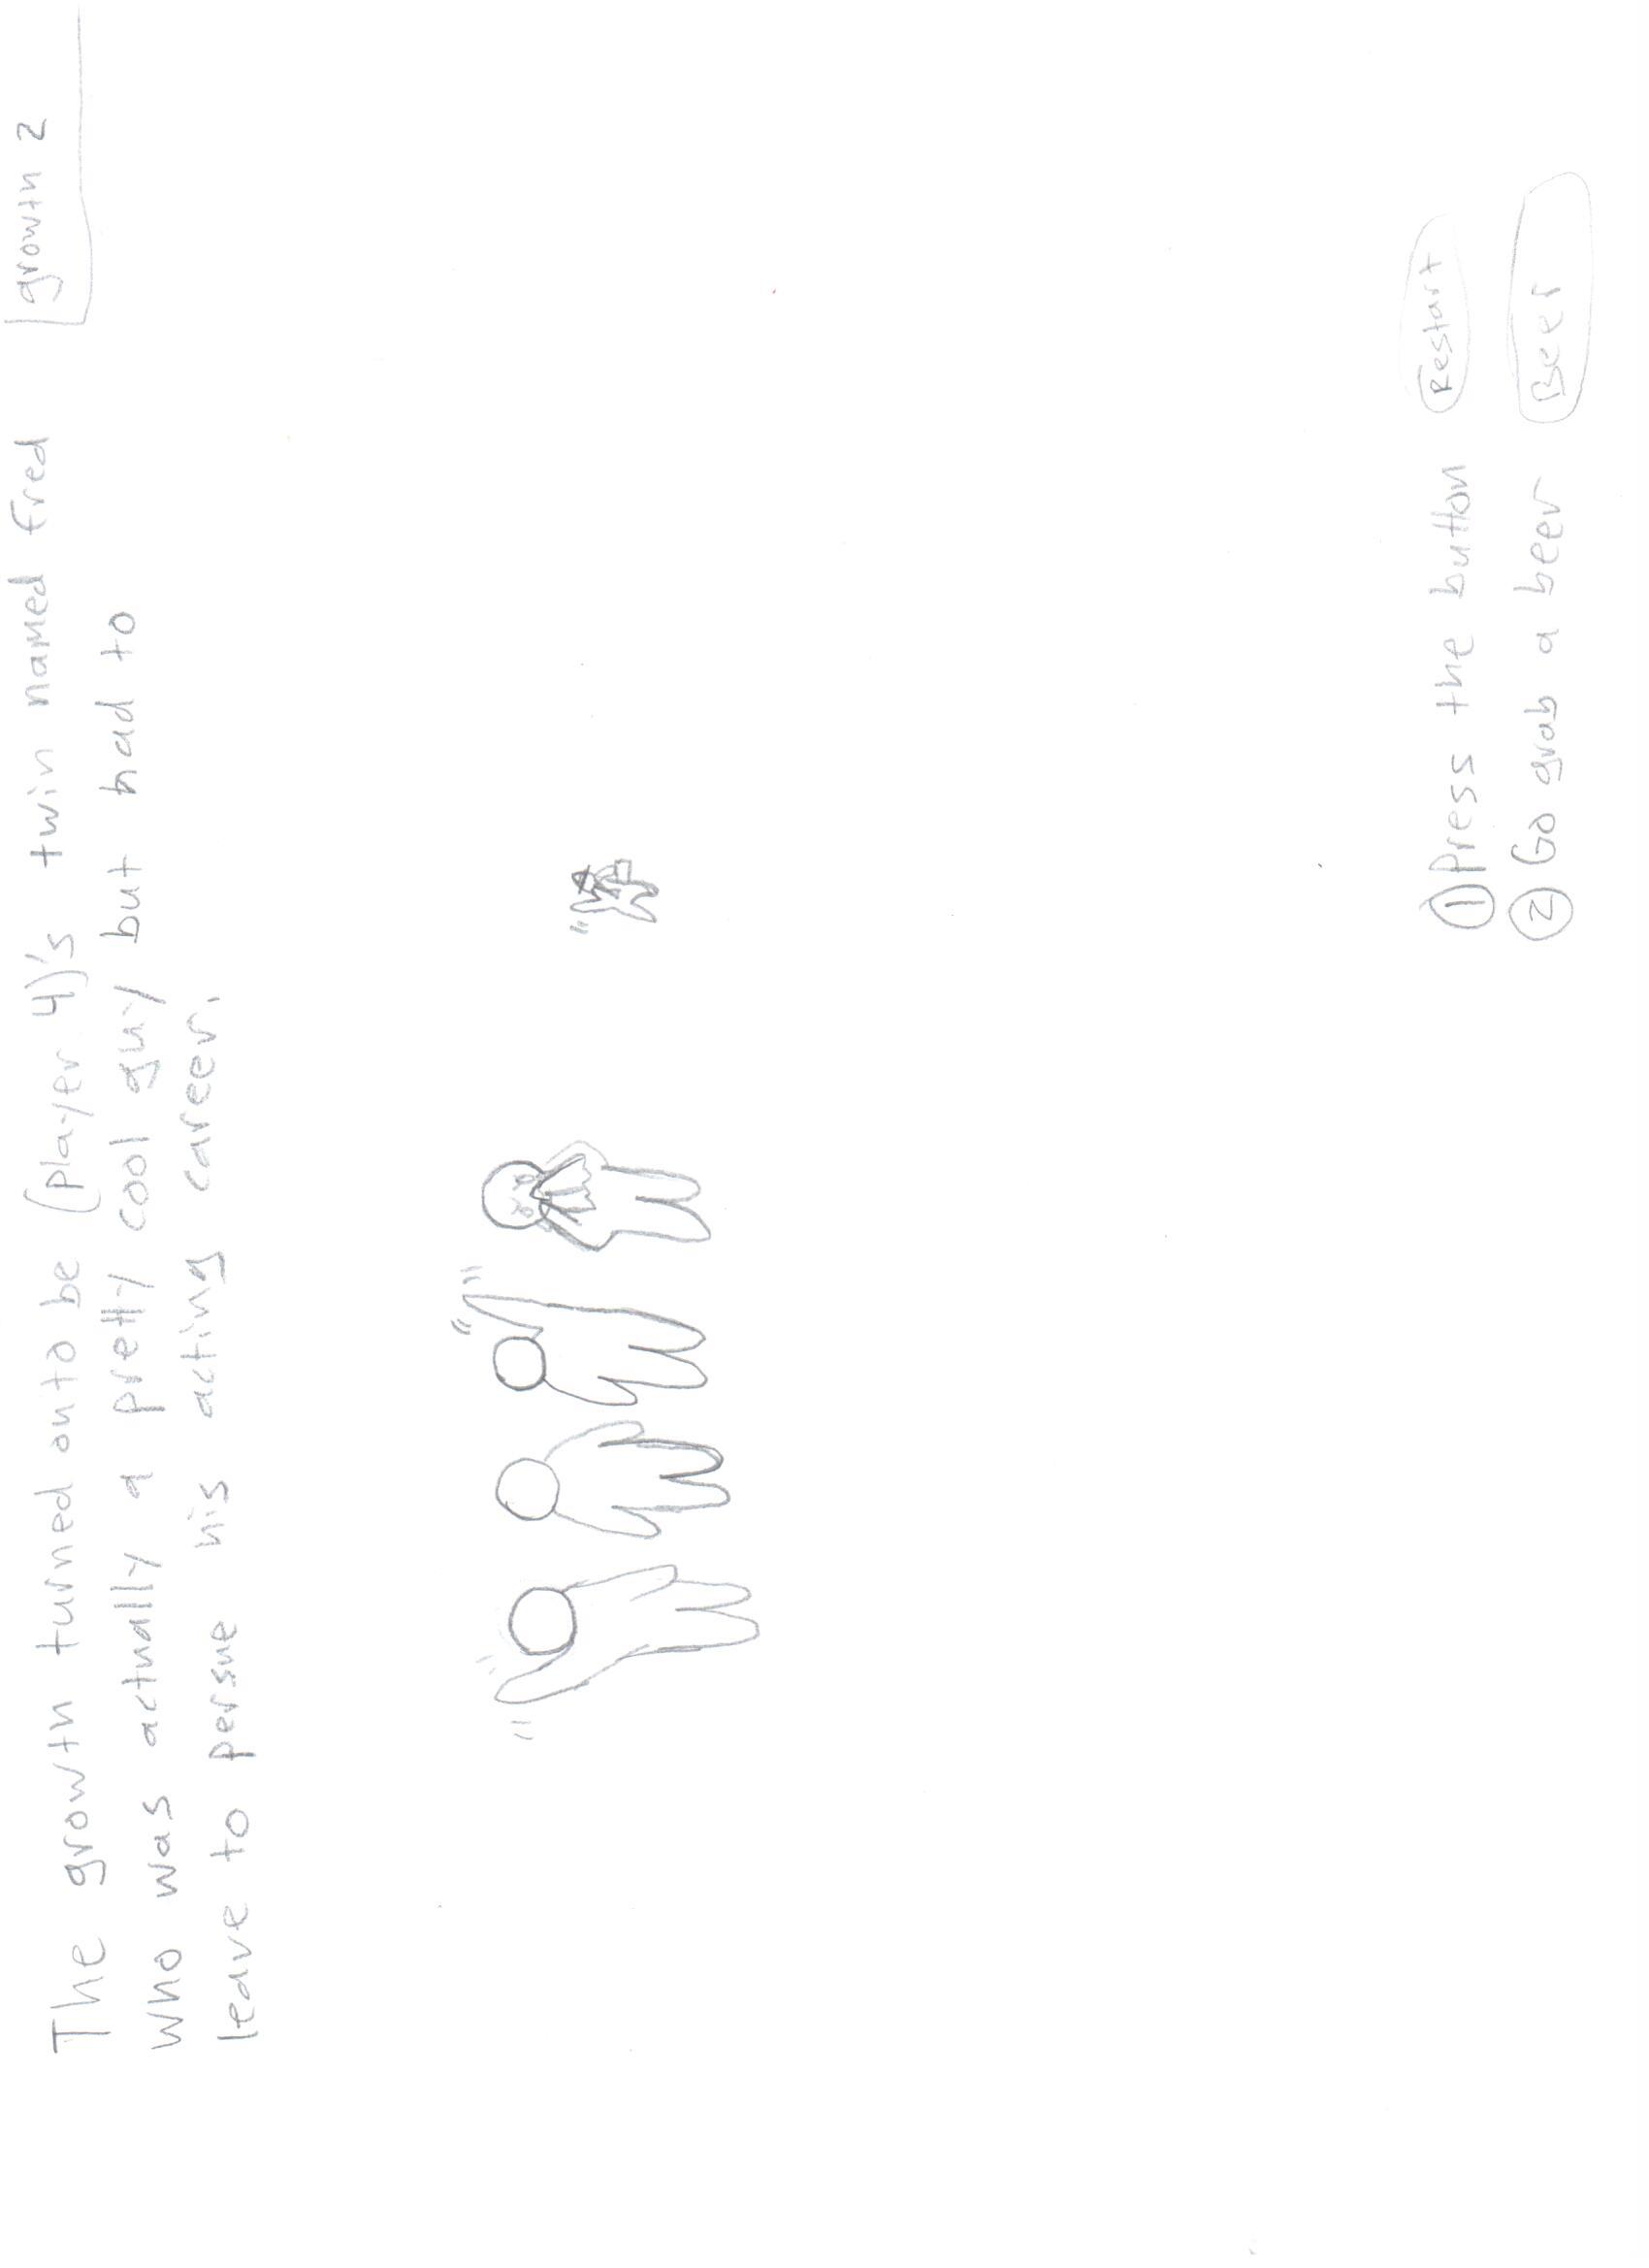 growth 2
The growth turned out to be (player 4)'s twin named fred
who was actually a pretty cool guy but had to
leave to persue his acting career.
① Press the button Restart
② Go grab a beer Beer